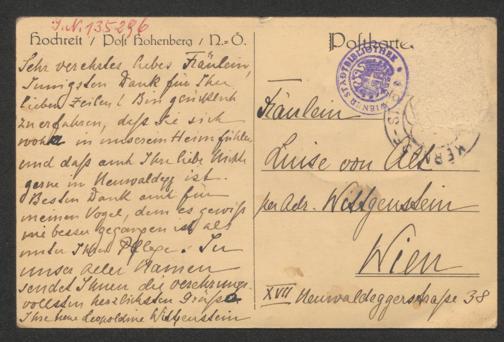 J.N. 135296
Hochreit / Post Hohenberg / N.-Ö.
Sehr verehrtes liebes Fräulein,
Innigsten Dank für Ihre
lieben Zeilen! Bin glücklich
zu erfahren, daß Sie sich
wohl in unserem Heim fühlen
und daß auch Ihre liebe Nichte
gerne in Neuwaldegg ist.
Besten Dank auch für
meinen Vogel, dem es gewiß
nie besser gegangen ist als
unter Ihrer Pflege. In
unser aller Namen
sendet Ihnen die verehrungs-
vollsten herzlichsten Grüße
Ihre treue Leopoldine Wittgenstein
Postkarte
WIENER STADTBIBLIOTHEK
Fräulein
Luise von Alt
per Adr. Wittgenstein
Wien
XVII Neuwaldeggerstraße 38